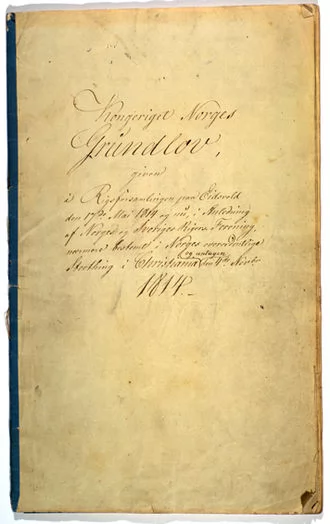 Kongeriget Norges
Grundlov,
given
i Rigsforsamlingen paa Eidsvold
den 17de Mai 1814 og nu, i Anledning
af Norges og Sveriges Rigers Forening,
nærmere bestemt i Norges overordentlige
og antagen
Storthing i Christiania den 4de Novbr
1814.